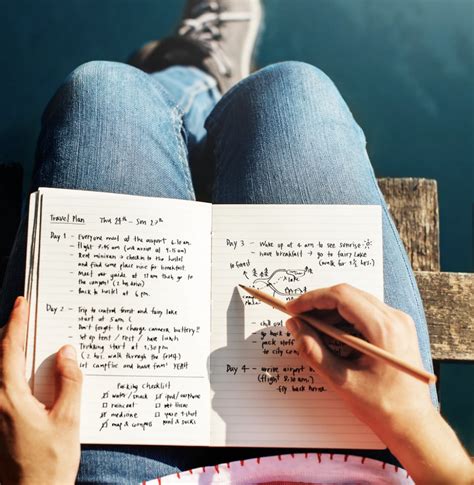 Travel Plan Thu 28th - Sun 2nd
Day 1 - Everyone meet at the airport 6.30 am
- flight 9.15 am → arrive at 10.30 am
- Rent minivan → checkin to the hostel
and find some place nice for breakfast
- Meet our guide at 11 am then go to
the canyons. (2 hrs by car)
- Back to hostel at 6 pm
Day 2 - Trip to central forest and fairy lake
start at 5 am
- Don't forget to charge camera battery!!
- set up tents / rest / have lunch
- Trekking start at
(2 hrs. walk through the forest)
lit campfire and have party YEAH
Packing checklist
water/snack
raincoat
medicine
map & compass
ipod/earphone
tent
spare t-shirt
and socks
Day 3 - Wake up at 4 am to see sunrise
- have breakfast → go to fairy lake
(walk for 3/4 hr.)
forest
lake
chill out
go back to
pack stuffs
to city
Day 4 - arrive airport
(flight 8.30 am)
back home